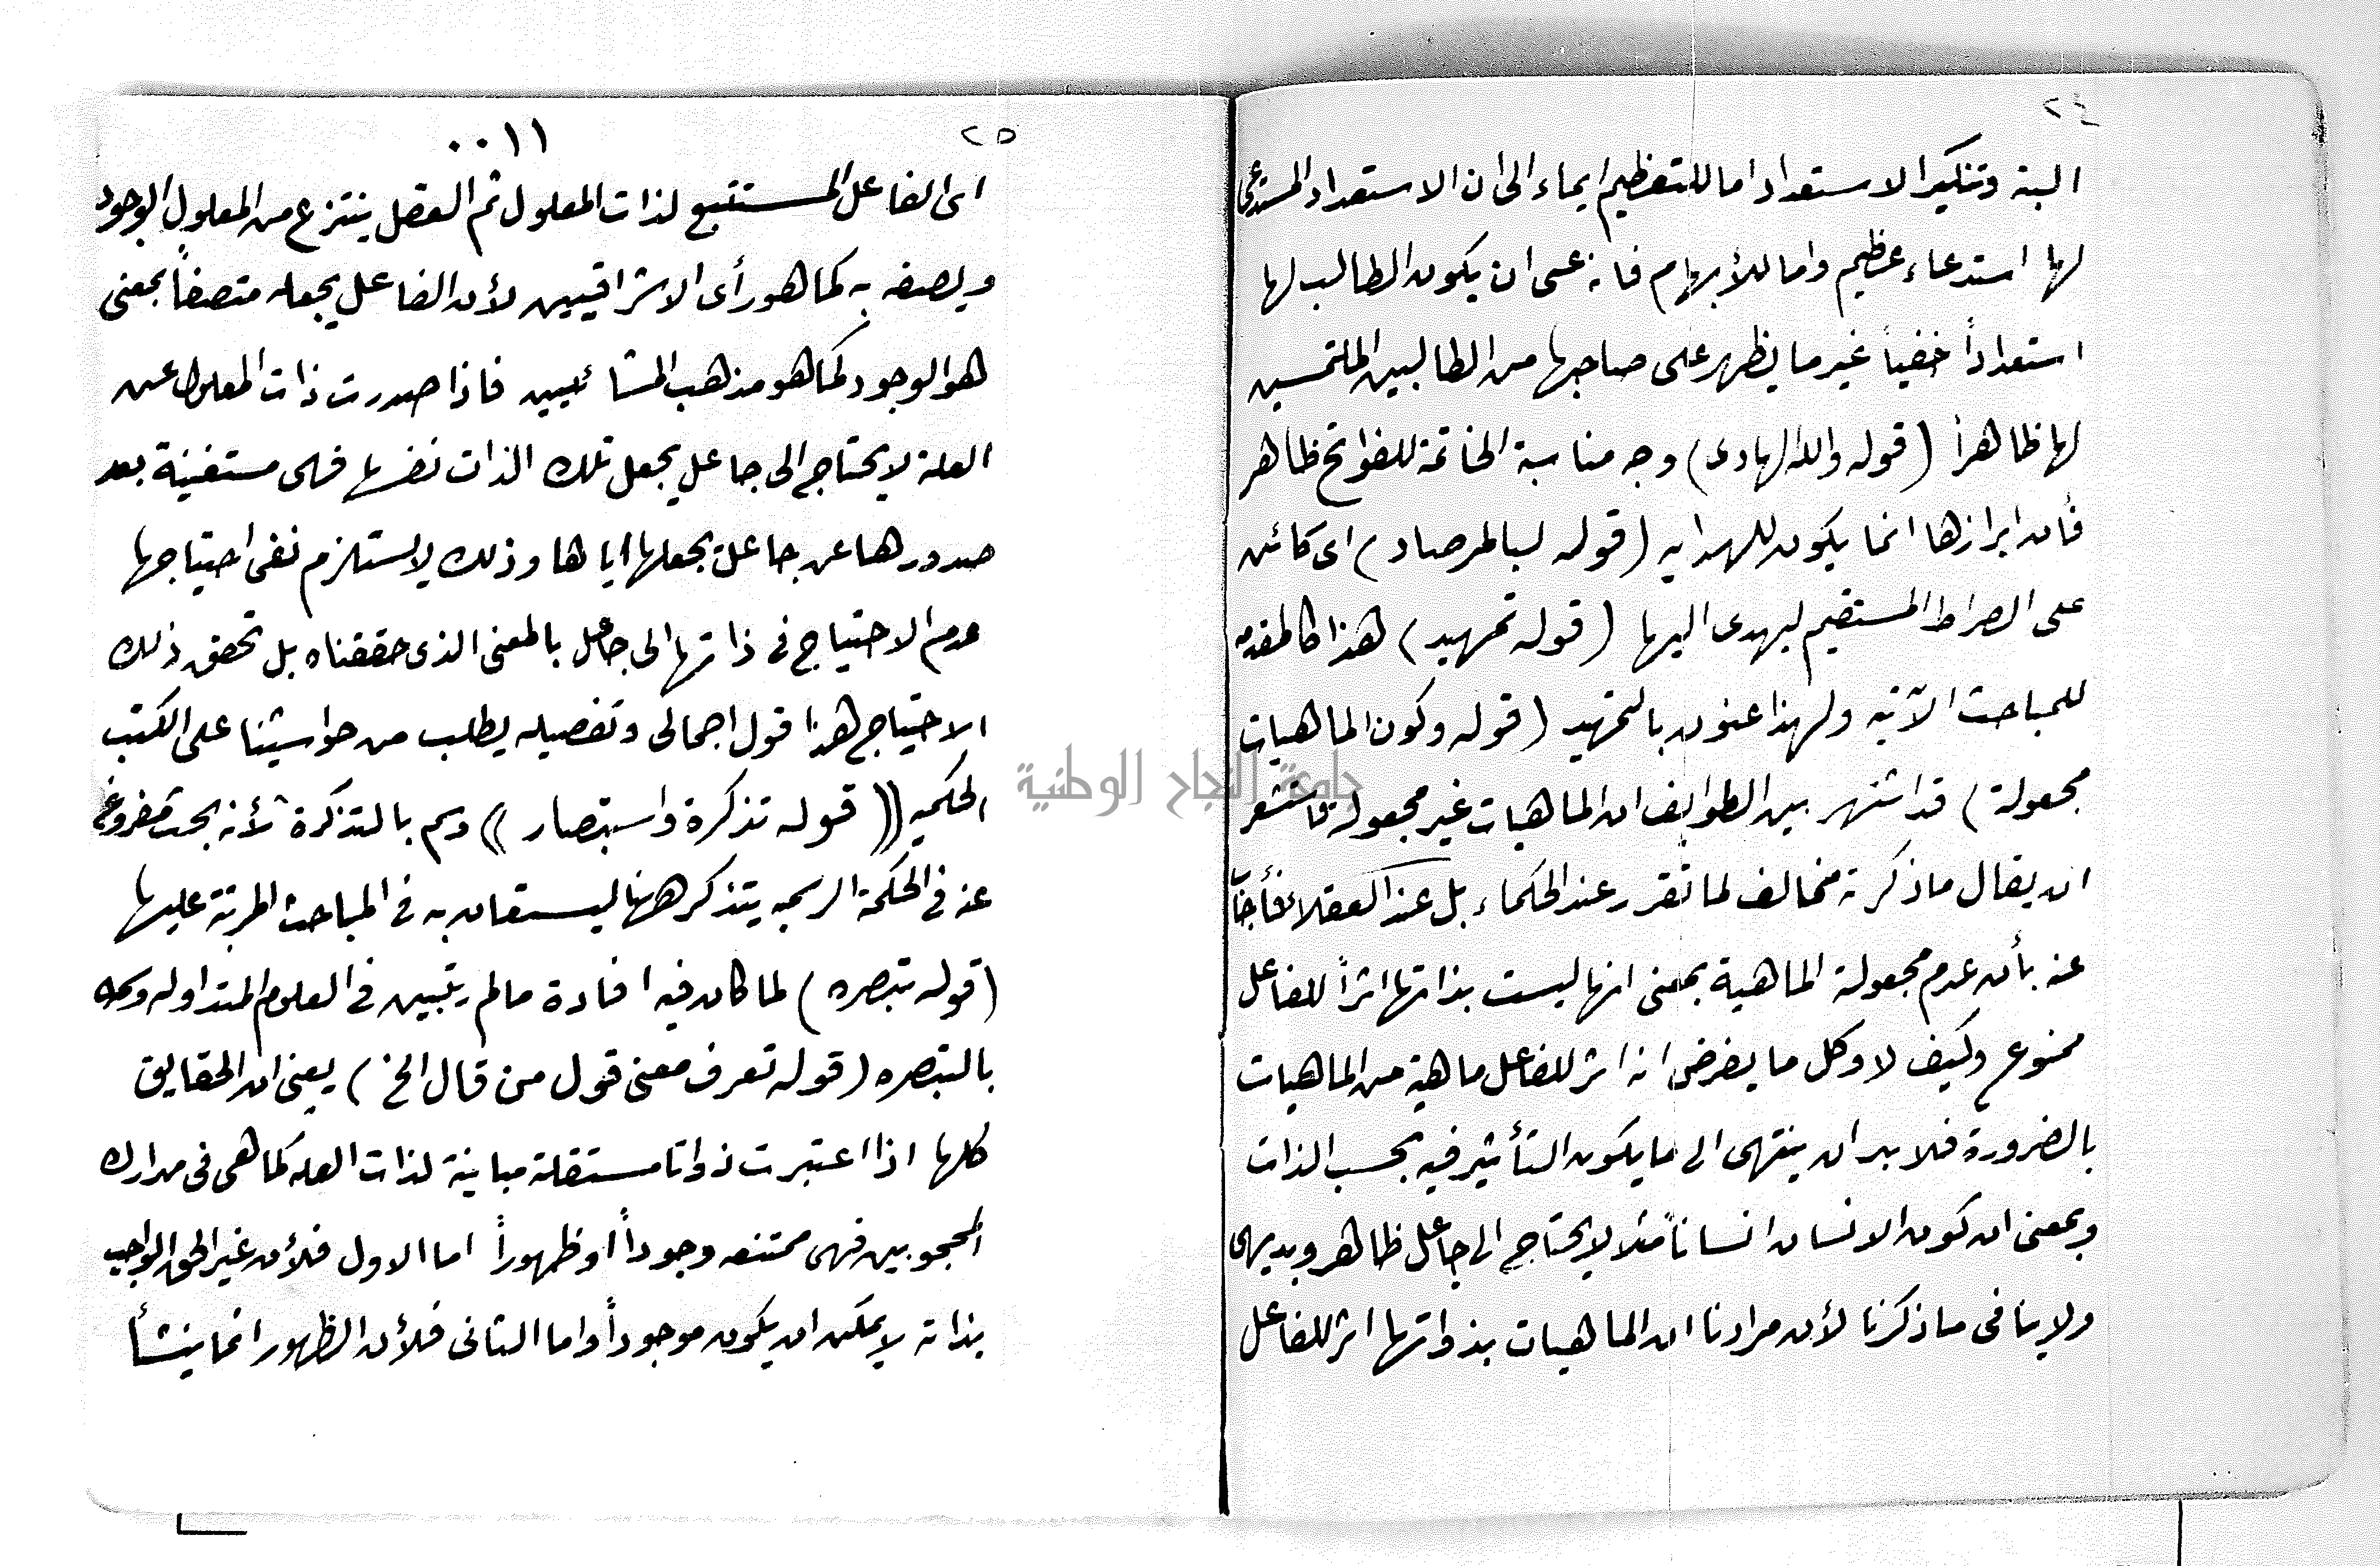 ٢٤
البتة وتنكير الاستعداد اما للتعظيم ايماء الى ان الاستعداد المستدعى
لها استدعاء عظيم واما للأبهام فانه عسى ان يكون الطالب لها
استعداداً خفياً غير ما يظهر على صاحبها من الطالبين الملتمسين
لها ظاهراً (قوله والله الهادى) وجه مناسبة الخاتمة للفواتح ظاهر
فأن ابرازها انما يكون للهدايه (قوله لبالمرصاد) اى كائن
على الصراط المستقيم ليهدى اليها (قوله تمهيد) هذا كالمقدمه
للمباحث الآتيه ولهذا عنون بالتمهيد (قوله وكون الماهيات
مجعولة) قد اشتهر بين الطوايف ان الماهيات غير مجعولة فاستشعر
ان يقال ما ذكرته مخالف لما تقرر عند الحكماء بل عند العقلاء فأجاب
عنه بأن عدم مجعولة الماهية بمعنى انها ليست بذاتها اثراً للفاعل
ممنوع وكيف لا وكل ما يفرض انه اثر للفاعل ماهية من الماهيات
بالضرورة فلا بد ان ينتهى الى ما يكون التأثير فيه بحسب الذات
وبمعنى ان كون الانسان انساناً مثلا لا يحتاج الى جاعل ظاهر وبديهى
ولا ينافى ما ذكرنا لأن مرادنا ان الماهيات بذواتها اثر للفاعل
٢٥
٠٠١١
اى الفاعل المستتبع لذات المعلول ثم العقل ينتزع من المعلول الوجود
ويصفه به كما هو رأى الاشراقيين لأن الفاعل يجعله متصفاً بمعنى
هو الوجود كما هو مذهب المشائيين فاذا صدرت ذات المعلول عن
العلة لا يحتاج الى جاعل يجعل تلك الذات نفسها فهى مستغنية بعد
صدورها عن جاعل يجعلها اياها وذلك لا يستلزم نفى احتياجها
عدم الاحتياج فى ذاتها الى جاعل بالمعنى الذى حققناه بل تحقق ذلك
الاحتياج هذا قول اجمالى وتفصيله يطلب من حواشينا على الكتب
الحكميه ((قوله تذكرة واستبصار)) وسم بالتذكرة لأنه بحث مفروغ
عنه فى الحكمة الرسميه يتذكر ههنا ليستعان به فى المباحث المرتبة عليها
(قوله تبصره) لما كان فيه افادة ما لم يتبين فى العلوم المتداوله وسمه
بالتبصره (قوله تعرف معنى قول من قال الخ) يعنى ان الحقايق
كلها اذا اعتبرت ذواتا مستقلة مباينة لذات العله كما هى فى مدارك
المحجوبين فهى ممتنعه وجوداً او ظهوراً اما الاول فلأن غير الحق الواجب
بذاته لا يمكن ان يكون موجوداً واما الثانى فلأن الظهور انما ينشأ
جامعة النجاح الوطنية